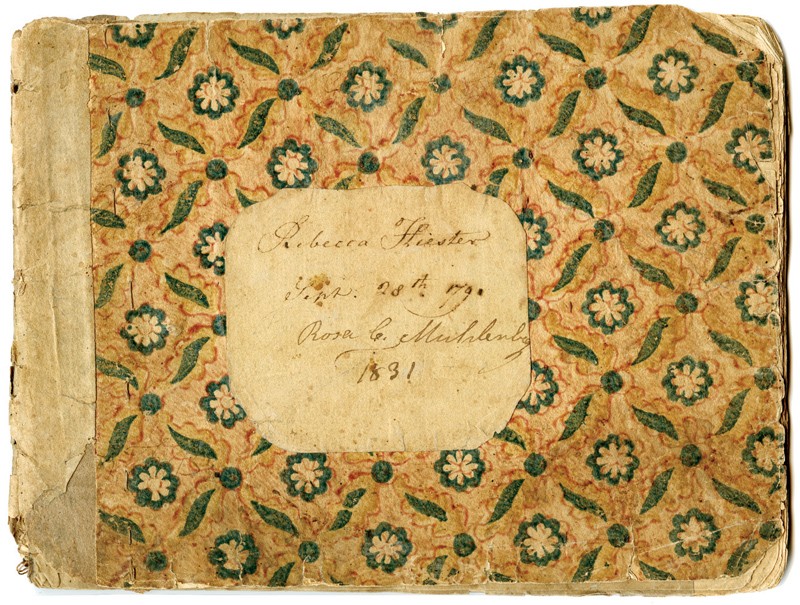 Rebecca Hiester
Sept. 28th 179
Rosa C. Muhlenbg
1831